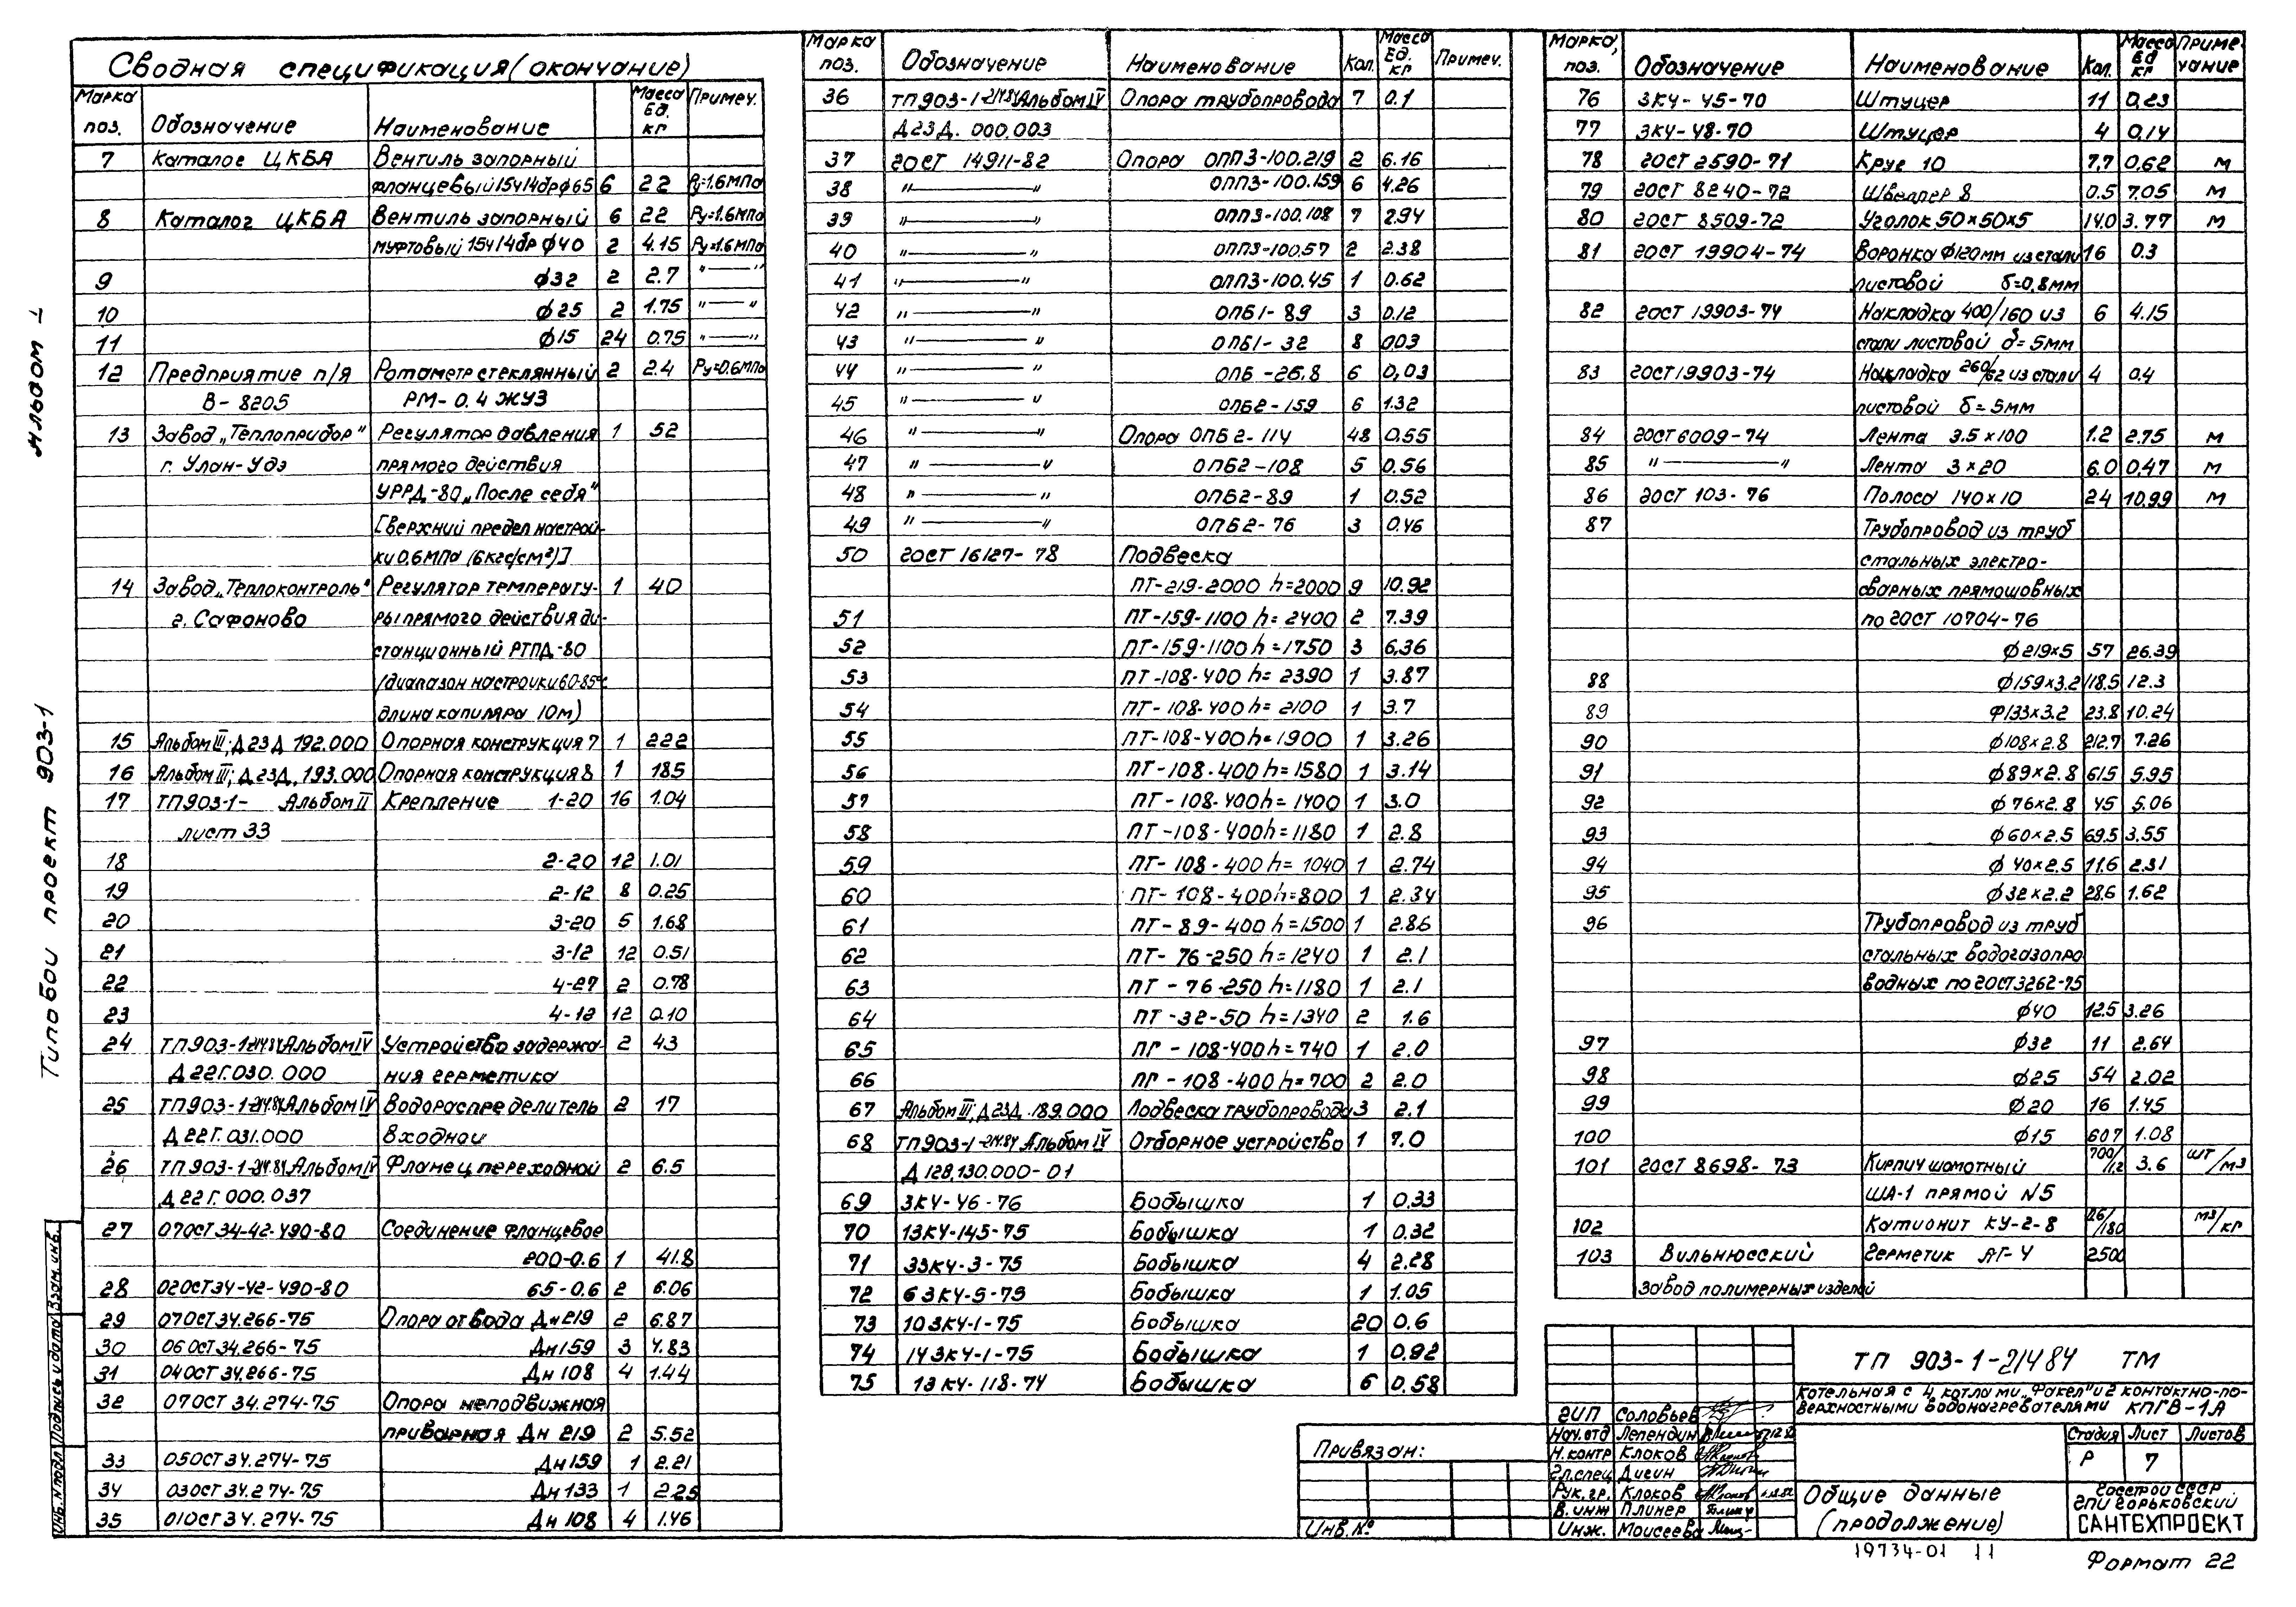 Сводная спецификация (окончание)
Марка поз. Обозначение Наименование Масса Ед. кг Примеч.
7 Каталог ЦКБА Вентиль запорный
фланцевый 15ч14бр ф65 6 22 Ру=1.6МПа
8 Каталог ЦКБА Вентиль запорный 6 22 Ру=1.6МПа
муфтовый 15ч14бр ф40 2 4.15 Ру=1.6МПа
9 ф32 2 2.7 "—"
10 ф25 2 1.75 "—"
11 ф15 24 0.75 "—"
12 Предприятие п/я Ротаметр стеклянный 2 2.4 Ру=0.6МПа
В-8205 РМ-0.4 ЖУЗ
13 Завод „Теплоприбор" Регулятор давления 1 52
г. Улан-Удэ прямого действия
УРРД-80 „После себя"
[верхний предел настрой-
ки 0.6МПа (6кгс/см²)]
14 Завод „Теплоконтроль" Регулятор температу- 1 40
г. Сафоново ры прямого действия ди-
станционный РТПД-80
/диапазон настройки 60-85°с
длина капиляра 10м)
15 Альбом III; Д23Д 192.000 Опорная конструкция 7 1 222
16 Альбом III; Д23Д. 193.000 Опорная конструкция 8 1 185
17 ТП903-1- Альбом II Крепление 1-20 16 1.04
лист 33
18 2-20 12 1.01
19 2-12 8 0.25
20 3-20 5 1.68
21 3-12 12 0.51
22 4-27 2 0.78
23 4-12 12 0.10
24 ТП903-1-214.84 Альбом IV Устройство задержа- 2 43
Д22Г.030.000 ния герметика
25 ТП903-1-214.84 Альбом IV Водораспределитель 2 17
Д22Г.031.000 входной
26 ТП903-1-214.84 Альбом IV Фланец переходной 2 6.5
Д22Г.000.037
27 07ОСТ 34-42-490-80 Соединение фланцевое
200-0.6 1 41.8
28 02ОСТ34-42-490-80 65-0.6 2 6.06
29 07ОСТ34.266-75 Опора отвода Дн219 2 6.87
30 06ОСТ34.266-75 Дн159 3 4.83
31 04ОСТ34.266-75 Дн108 4 1.44
32 07ОСТ 34.274-75 Опора неподвижная
приварная Дн 219 2 5.52
33 05ОСТ34.274-75 Дн159 1 2.21
34 03ОСТ34.274-75 Дн133 1 2.25
35 01ОСТ34.274-75 Дн108 4 1.46
Марка поз. Обозначение Наименование Кол. Масса Ед. кг Примеч.
36 ТП903-1-214.84 Альбом IV Опора трубопровода 7 0.1
Д23Д.000.003
37 ГОСТ 14911-82 Опора ОПП3-100.219 2 6.16
38 "—" ОПП3-100.159 6 4.26
39 "—" ОПП3-100.108 7 2.94
40 "—" ОПП3-100.57 2 2.38
41 "—" ОПП3-100.45 1 0.62
42 "—" ОПБ1-89 3 0.12
43 "—" ОПБ1-32 8 003
44 "—" ОПБ-26.8 6 0,03
45 "—" ОПБ2-159 6 1.32
46 "—" Опора ОПБ2-114 48 0.55
47 "—" ОПБ2-108 5 0.56
48 "—" ОПБ2-89 1 0.52
49 "—" ОПБ2-76 3 0.46
50 ГОСТ 16127-78 Подвеска
ПТ-219-2000 h=2000 9 10.92
51 ПТ-159-1100 h=2400 2 7.39
52 ПТ-159-1100 h=1750 3 6,36
53 ПТ-108-400 h=2390 1 3.87
54 ПТ-108-400 h=2100 1 3.7
55 ПТ-108-400 h=1900 1 3.26
56 ПТ-108-400 h=1580 1 3.14
57 ПТ-108-400 h=1400 1 3.0
58 ПТ-108-400 h=1180 1 2.8
59 ПТ-108-400 h=1040 1 2.74
60 ПТ-108-400 h=800 1 2.34
61 ПТ-89-400 h=1500 1 2.86
62 ПТ-76-250 h=1240 1 2.1
63 ПТ-76-250 h=1180 1 2.1
64 ПТ-32-50 h=1340 2 1.6
65 ПГ-108-400 h=740 1 2.0
66 ПГ-108-400 h=700 2 2.0
67 Альбом III; Д23Д.189.000 Подвеска трубопровода 3 2.1
68 ТП903-1-214.84 Альбом IV Отборное устройство 1 7.0
Д128,130.000-01
69 3К4-46-76 Бобышка 1 0.33
70 13К4-145-75 Бобышка 1 0.32
71 33К4-3-75 Бобышка 4 2.28
72 63К4-5-75 Бобышка 1 1.05
73 103К4-1-75 Бобышка 20 0.6
74 143К4-1-75 Бобышка 1 0.92
75 13К4-118-74 Бобышка 6 0.58
Марка, поз. Обозначение Наименование Кол. Масса Ед кг Приме-чание
76 3К4-45-70 Штуцер 11 0.23
77 3К4-48-70 Штуцер 4 0.14
78 ГОСТ 2590-71 Круг 10 7,7 0.62 м
79 ГОСТ 8240-72 Швеллер 8 0.5 7.05 м
80 ГОСТ 8509-72 Уголок 50×50×5 14.0 3.77 м
81 ГОСТ 19904-74 Воронка ф120мм из стали 16 0.3
листовой б=0,8мм
82 ГОСТ 19903-74 Накладка 400/160 из 6 4.15
стали листовой б=5мм
83 ГОСТ19903-74 Накладка 260/62 из стали 4 0.4
листовой б=5мм
84 ГОСТ6009-74 Лента 3.5×100 1.2 2.75 м
85 "—" Лента 3×20 6.0 0.47 м
86 ГОСТ 103-76 Полоса 140×10 24 10.99 м
87 Трубопровод из труб
стальных электро-
сварных прямошовных
по ГОСТ 10704-76
ф219×5 57 26.39
88 ф159×3.2 118.5 12.3
89 ф133×3.2 23.8 10.24
90 ф108×2.8 212.7 7.26
91 ф89×2.8 61.5 5.95
92 ф76×2.8 45 5.06
93 ф60×2.5 69.5 3.55
94 ф40×2.5 11.6 2.31
95 ф32×2.2 28.6 1.62
96 Трубопровод из труб
стальных водогазопро
водных по ГОСТ3262-75
ф40 12.5 3.26
97 ф32 11 2.64
98 ф25 54 2.02
99 ф20 16 1.45
100 ф15 607 1.08
101 ГОСТ 8698-73 Кирпич шамотный 700/1,2 3.6 шт/м3
ША-1 прямой N5
102 Катионит КУ-2-8 /180 м3/кг
103 Вильнюсский Герметик АГ-4 2500
завод полимерных изделий
ТП 903-1-214 84 ТМ
Котельная с 4 котлами „Факел" и 2 контактно-по-
верхностными водонагревателями КПГВ-1А
ГИП Соловьев
Нач.отд Лепендин
Н.контр Клоков
Гл.спец Дигин
Рук.гр. Клоков
В.инж Плинер
Инж. Моисеева
Стадия Лист Листов
Р 7
Общие данные
(продолжение)
Госстрой СССР
ГПИ Горьковский
САНТЕХПРОЕКТ
Привязан:
Инв.№
19734-01 11
Формат 22
Альбом I
Типовой проект 903-1
Взам. инв.
Подпись и дата
Инв.N подл